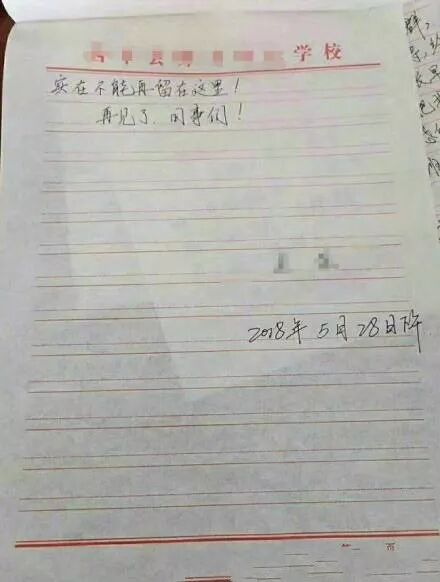 学校
实在不能再留在这里！
再见了，同事们！
2018年 5月 28日下午